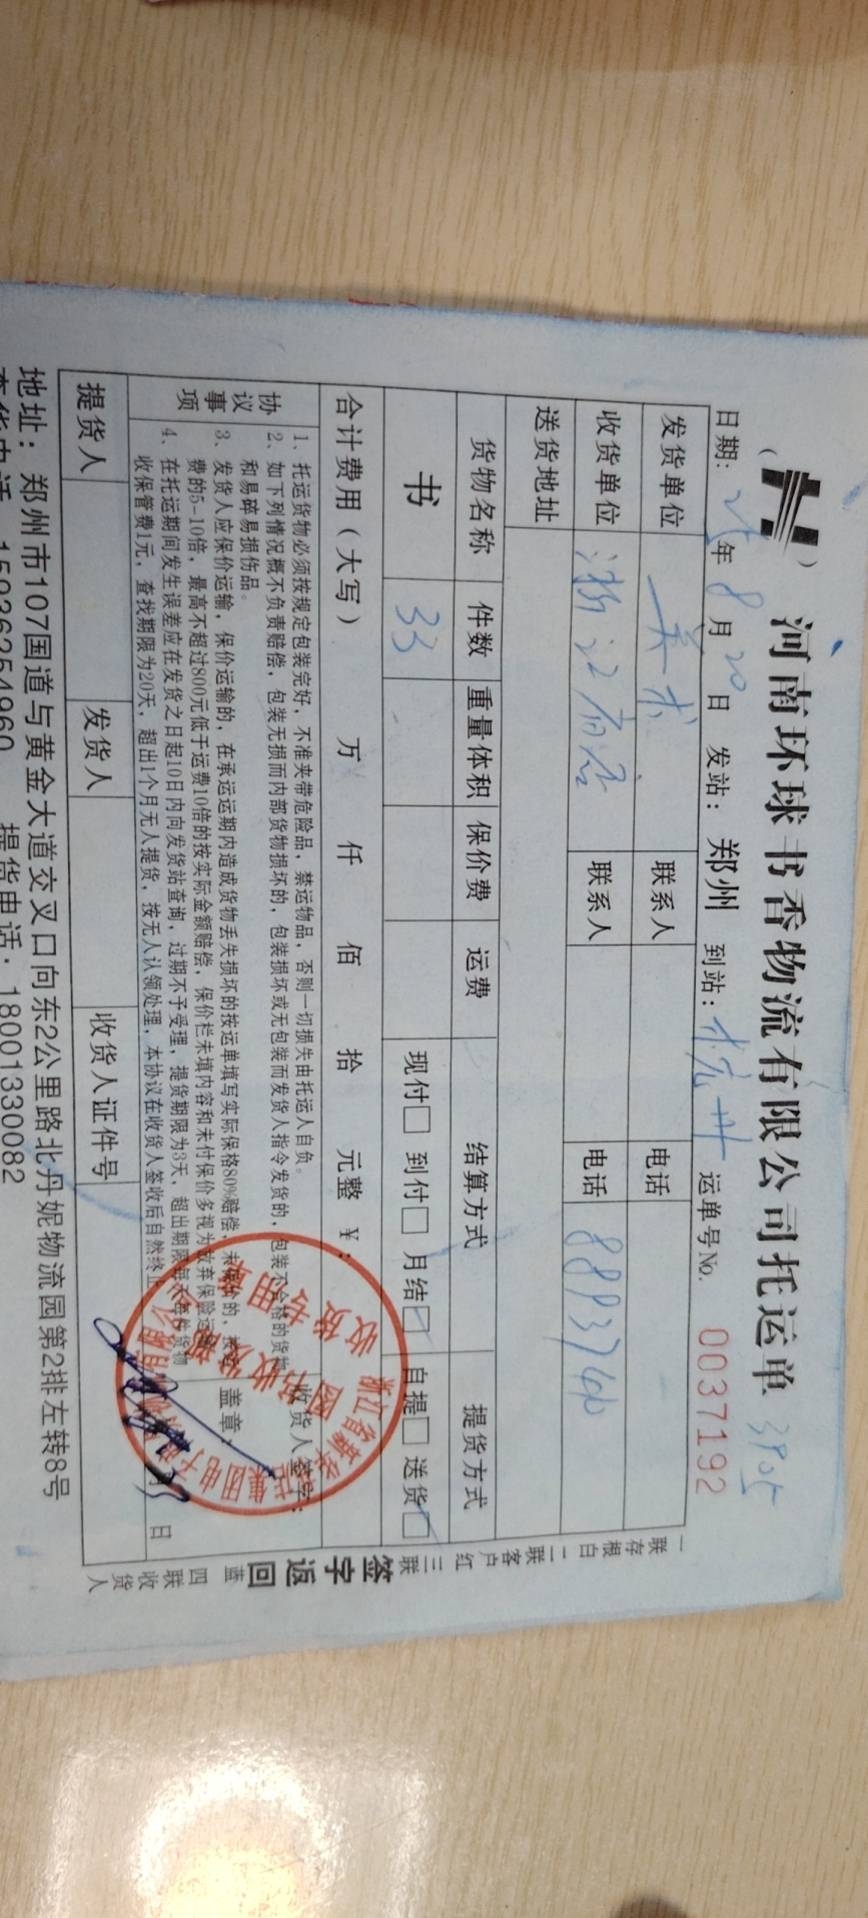 河南环球书香物流有限公司托运单
日期: 25年8月20日 发站: 郑州 到站: 杭州 运单号No. 0037192
发货单位 美术 联系人 电话
收货单位 浙江省店 联系人 电话
送货地址
货物名称 件数 重量体积 保价费 运费 结算方式 提货方式
书 33 现付□ 到付□ 月结□ 自提□ 送货□
合计费用(大写) 万 仟 佰 拾 元整 ¥:
协议事项
1、托运货物必须按规定包装完好，不准夹带危险品，禁运物品，否则一切损失由托运人自负。
2、如下列情况概不负责赔偿，包装无损而内部货物损坏的，包装损坏或无包装而发货人指令发货的，包装不合格的货物
和易碎易损伤品。
3、发货人应保价运输，保价运输的，在承运运期内造成货物丢失损坏的按运单填写实际保格80%赔偿，未保价的，按
费的5-10倍，最高不超过800元低于运费10倍的按实际金额赔偿，保价栏未填内容和未付保价多视为放弃保险
4、在托运期间发生误差应在发货之日起10日内向发货站查询，过期不予受理，提货期限为3天，超出期限每天每件货物
收保管费1元，查找期限为20天，超出1个月无人提货，按无人认领处理，本协议在收货人签收后自然终止
收货人签字:
盖章:
日
提货人 发货人 收货人证件号
地址: 郑州市107国道与黄金大道交叉口向东2公里路北丹妮物流园第2排左转8号
查货电话: 15036254960 提货电话: 18001330082
一联存根白 二联客户红 三联签字返回蓝 四联收货人
收货专用章